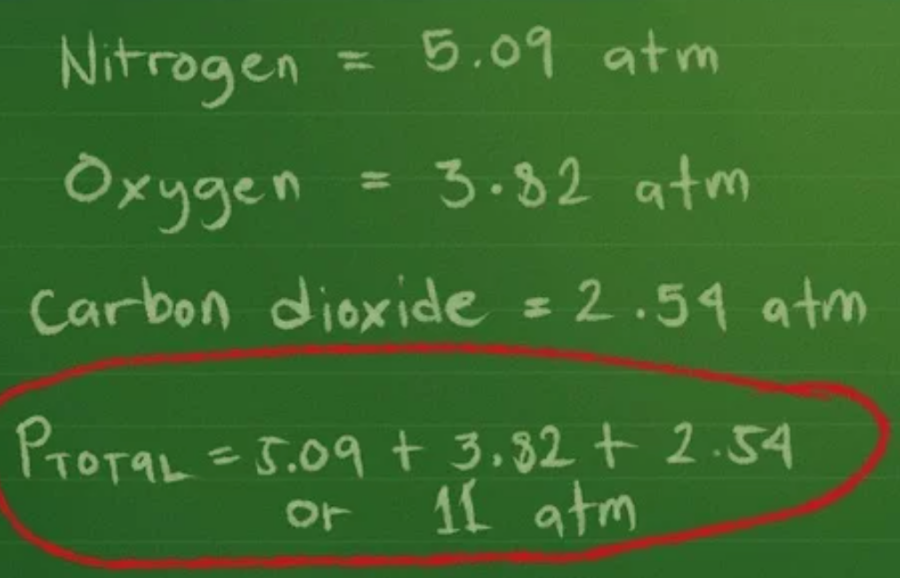 Nitrogen = 5.09 atm
Oxygen = 3.82 atm
Carbon dioxide = 2.54 atm
PTOTAL = 5.09 + 3.82 + 2.54
or 11 atm